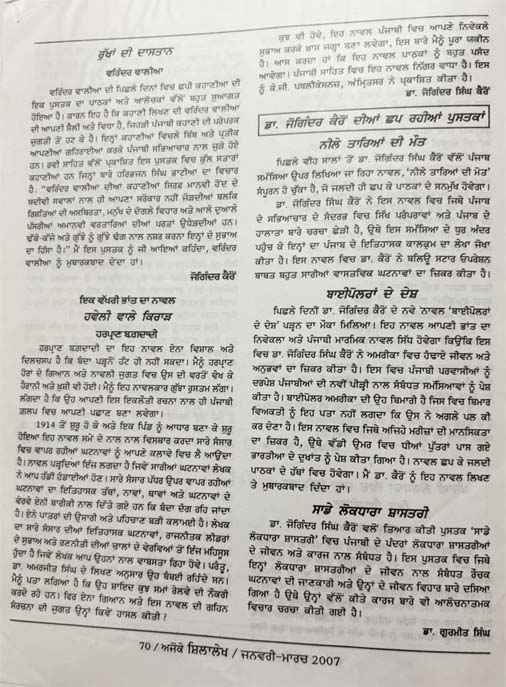 ਰੁੱਖਾਂ ਦੀ ਦਾਸਤਾਨ
ਵਰਿੰਦਰ ਵਾਲੀਆ
ਵਰਿੰਦਰ ਵਾਲੀਆ ਦੀ ਪਿਛਲੇ ਦਿਨਾਂ ਵਿਚ ਛਪੀ ਕਹਾਣੀਆ ਦੀ
ਇਕ ਪੁਸਤਕ ਦਾ ਪਾਠਕਾਂ ਅਤੇ ਆਲੋਚਕਾਂ ਵੱਲੋਂ ਬਹੁਤ ਸੁਆਗਤ
ਹੋਇਆ ਹੈ। ਕਾਰਨ ਇਹ ਹੈ ਕਿ ਕਹਾਣੀ ਲਿਖਣ ਦੀ ਵਰਿੰਦਰ ਵਾਲੀਆ
ਦੀ ਆਪਣੀ ਸ਼ੈਲੀ ਅਤੇ ਵਿਧਾ ਹੈ, ਜਿਹੜੀ ਪੰਜਾਬੀ ਕਹਾਣੀ ਦੀ ਪਰੰਪਰਕ
ਜੁਗਤੀ ਤੋਂ ਹਟ ਕੇ ਹੈ। ਇਨ੍ਹਾਂ ਕਹਾਣੀਆ ਵਿਚਲੇ ਬਿੰਬ ਅਤੇ ਪ੍ਰਤੀਕ
ਆਪਣੀਆ ਗਹਿਰਾਈਆਂ ਕਰਕੇ ਪੰਜਾਬੀ ਸਭਿਆਚਾਰ ਨਾਲ ਜੁੜੇ ਹੋਏ
ਹਨ। ਰਵੀ ਸਾਹਿਤ ਵੱਲੋਂ ਪ੍ਰਕਾਸ਼ਿਤ ਇਸ ਪੁਸਤਕ ਵਿਚ ਕੁੱਲ ਸਤਾਰਾਂ
ਕਹਾਣੀਆ ਹਨ ਜਿਨ੍ਹਾਂ ਬਾਰੇ ਹਰਿਭਜਨ ਸਿੰਘ ਭਾਟੀਆ ਦਾ ਵਿਚਾਰ
ਹੈ : "ਵਰਿੰਦਰ ਵਾਲੀਆ ਦੀਆਂ ਕਹਾਣੀਆਂ ਸਿਰਫ਼ ਮਾਨਵੀ ਹੋਂਦ ਦੇ
ਸਦੀਵੀ ਸਵਾਲਾਂ ਨਾਲ ਹੀ ਆਪਣਾ ਸਰੋਕਾਰ ਨਹੀਂ ਜੋੜਦੀਆਂ ਬਲਕਿ
ਰਿਸ਼ਤਿਆਂ ਦੀ ਅਸਥਿਰਤਾ, ਮਨੁੱਖ ਦੇ ਦੋਗਲੇ ਵਿਹਾਰ ਅਤੇ ਆਲੇ ਦੁਆਲੇ
ਪੱਸਰੀਆਂ ਅਮਾਨਵੀ ਵਰਤਾਰਿਆਂ ਦੀਆਂ ਪਰਤਾਂ ਉਧੇੜਦੀਆਂ ਹਨ।
ਢੱਕੇ-ਕੱਜੇ ਅਤੇ ਗੁੱਝੇ ਨੂੰ ਗੁੱਝੇ ਢੰਗ ਨਾਲ ਨਸ਼ਰ ਕਰਨਾ ਇਨ੍ਹਾਂ ਦੇ ਸੁਭਾਅ
ਦਾ ਹਿੱਸਾ ਹੈ।" ਮੈਂ ਇਸ ਪੁਸਤਕ ਨੂੰ ਜੀ ਆਇਆਂ ਕਹਿੰਦਾ, ਵਰਿੰਦਰ
ਵਾਲੀਆ ਨੂੰ ਮੁਬਾਰਕਬਾਦ ਦੇਂਦਾ ਹਾਂ।
ਜੋਗਿੰਦਰ ਕੈਰੋਂ
ਇਕ ਵੱਖਰੀ ਭਾਂਤ ਦਾ ਨਾਵਲ
ਹਵੇਲੀ ਵਾਲੇ ਕਿਰਾੜ
ਹਰਪ੍ਰਾਣ ਬਗ਼ਦਾਦੀ
ਹਰਪ੍ਰਾਣ ਬਗ਼ਦਾਦੀ ਦਾ ਇਹ ਨਾਵਲ ਏਨਾ ਵਿਸ਼ਾਲ ਅਤੇ
ਦਿਲਚਸਪ ਹੈ ਕਿ ਬੰਦਾ ਪੜ੍ਹਨੋਂ ਹੱਟ ਹੀ ਨਹੀਂ ਸਕਦਾ। ਮੈਨੂੰ ਹਰਪ੍ਰਾਣ
ਹੋਰਾਂ ਦੇ ਗਿਆਨ ਅਤੇ ਨਾਵਲੀ ਜੁਗਤ ਵਿਚ ਉਸ ਦੀ ਵਰਤੋਂ ਵੇਖ ਕੇ
ਹੈਰਾਨੀ ਅਤੇ ਖ਼ੁਸ਼ੀ ਵੀ ਹੋਈ। ਮੈਨੂੰ ਇਹ ਨਾਵਲਕਾਰ ਗੁੱਝਾ ਰੁਸਤਮ ਲੱਗਾ।
ਲੱਗਦਾ ਹੈ ਕਿ ਉਹ ਆਪਣੀ ਇਸ ਇਕਲੌਤੀ ਰਚਨਾ ਨਾਲ ਹੀ ਪੰਜਾਬੀ
ਗਲਪ ਵਿਚ ਆਪਣੀ ਪਛਾਣ ਬਣਾ ਲਵੇਗਾ।
1914 ਤੋਂ ਸ਼ੁਰੂ ਹੋ ਕੇ ਅਤੇ ਇਕ ਪਿੰਡ ਨੂੰ ਆਧਾਰ ਬਣਾ ਕੇ ਸ਼ੁਰੂ
ਹੋਇਆ ਇਹ ਨਾਵਲ ਸਮੇਂ ਦੇ ਨਾਲ ਨਾਲ ਵਿਸਥਾਰ ਕਰਦਾ ਸਾਰੇ ਸੰਸਾਰ
ਵਿਚ ਵਾਪਰ ਰਹੀਆਂ ਘਟਨਾਵਾਂ ਨੂੰ ਆਪਣੇ ਕਲਾਵੇ ਵਿਚ ਲੈ ਆਉਂਦਾ
ਹੈ। ਨਾਵਲ ਪੜ੍ਹਦਿਆਂ ਇੰਜ ਲਗਦਾ ਹੈ ਜਿਵੇਂ ਸਾਰੀਆਂ ਘਟਨਾਵਾਂ ਲੇਖਕ
ਨੇ ਆਪ ਹੱਡੀਂ ਹੰਢਾਈਆਂ ਹੋਣ। ਸਾਰੇ ਸੰਸਾਰ ਪੱਧਰ ਉਪਰ ਵਾਪਰੀਆਂ
ਘਟਨਾਵਾਂ ਦਾ ਇਤਿਹਾਸਕ ਤੱਥਾਂ, ਨਾਵਾਂ, ਥਾਵਾਂ ਅਤੇ ਘਟਨਾਵਾਂ ਦੇ
ਵੇਰਵੇ ਏਨੀ ਬਾਰੀਕੀ ਨਾਲ ਦਿੱਤੇ ਗਏ ਹਨ ਕਿ ਬੰਦਾ ਦੰਗ ਰਹਿ ਜਾਂਦਾ
ਹੈ। ਏਨੇ ਪਾਤਰਾਂ ਦੀ ਉਸਾਰੀ ਅਤੇ ਪਹਿਚਾਣ ਬੜੀ ਕਲਾਮਈ ਹੈ। ਲੇਖਕ
ਦਾ ਸਾਰੇ ਸੰਸਾਰ ਦੀਆਂ ਇਤਿਹਾਸਕ ਘਟਨਾਵਾਂ, ਰਾਜਨੀਤਕ ਲੀਡਰਾਂ
ਦੇ ਸੁਭਾਅ ਅਤੇ ਰਣਨੀਤੀ ਦੀਆਂ ਚਾਲਾਂ ਦੇ ਵੇਰਵਿਆਂ ਤੋਂ ਇੰਜ ਮਹਿਸੂਸ
ਹੁੰਦਾ ਹੈ ਜਿਵੇਂ ਲੇਖਕ ਆਪ ਉਹਨਾਂ ਨਾਲ ਵਾਬਸਤਾ ਰਿਹਾ ਹੋਵੇ। ਪਰੰਤੂ,
ਡਾ. ਅਮਰਜੀਤ ਸਿੰਘ ਦੇ ਲਿਖਣ ਅਨੁਸਾਰ ਉਹ ਬੰਬਈ ਰਹਿੰਦੇ ਸਨ।
ਮੈਨੂੰ ਪਤਾ ਲਗਿਆ ਹੈ ਕਿ ਉਹ ਸ਼ਾਇਦ ਕੁਝ ਸਮਾਂ ਰੇਲਵੇ ਦੀ ਨੌਕਰੀ
ਕਰਦੇ ਰਹੇ ਹਨ। ਫਿਰ ਏਨਾ ਗਿਆਨ ਅਤੇ ਇਸ ਨਾਵਲ ਦੀ ਗਹਿਨ
ਸੰਰਚਨਾ ਦੀ ਜੁਗਤ ਉਨ੍ਹਾਂ ਕਿਵੇਂ ਹਾਸਲ ਕੀਤੀ?
ਕੁਝ ਵੀ ਹੋਵੇ, ਇਹ ਨਾਵਲ ਪੰਜਾਬੀ ਵਿਚ ਆਪਣੇ ਨਿਵੇਕਲੇ
ਸੁਭਾਅ ਕਰਕੇ ਖ਼ਾਸ ਜਗ੍ਹਾ ਬਣਾ ਲਵੇਗਾ, ਇਸ ਬਾਰੇ ਮੈਨੂੰ ਪੂਰਾ ਯਕੀਨ
ਹੈ। ਆਸ ਕਰਦਾ ਹਾਂ ਕਿ ਇਹ ਨਾਵਲ ਪਾਠਕਾਂ ਨੂੰ ਬਹੁਤ ਪਸੰਦ
ਆਵੇਗਾ। ਪੰਜਾਬੀ ਸਾਹਿਤ ਵਿਚ ਇਹ ਨਾਵਲ ਨਿੱਗਰ ਵਾਧਾ ਹੈ। ਇਸ
ਨੂੰ ਕੇ.ਜੀ. ਪਬਲੀਕੇਸ਼ਨਜ਼, ਅੰਮ੍ਰਿਤਸਰ ਨੇ ਪ੍ਰਕਾਸ਼ਿਤ ਕੀਤਾ ਹੈ।
ਡਾ. ਜੋਗਿੰਦਰ ਸਿੰਘ ਕੈਰੋਂ
ਡਾ. ਜੋਗਿੰਦਰ ਕੈਰੋਂ ਦੀਆਂ ਛਪ ਰਹੀਆਂ ਪੁਸਤਕਾਂ
ਨੀਲੇ ਤਾਰਿਆਂ ਦੀ ਮੌਤ
ਪਿਛਲੇ ਵੀਹ ਸਾਲਾਂ ਤੋਂ ਡਾ. ਜੋਗਿੰਦਰ ਸਿੰਘ ਕੈਰੋਂ ਵੱਲੋਂ ਪੰਜਾਬ
ਸਮੱਸਿਆ ਉਪਰ ਲਿਖਿਆ ਜਾ ਰਿਹਾ ਨਾਵਲ, 'ਨੀਲੇ ਤਾਰਿਆਂ ਦੀ ਮੌਤ'
ਸੰਪੂਰਨ ਹੋ ਚੁੱਕਾ ਹੈ, ਜੋ ਜਲਦੀ ਹੀ ਛਪ ਕੇ ਪਾਠਕਾਂ ਦੇ ਸਨਮੁੱਖ ਹੋਵੇਗਾ।
ਡਾ. ਜੋਗਿੰਦਰ ਸਿੰਘ ਕੈਰੋਂ ਨੇ ਇਸ ਨਾਵਲ ਵਿਚ ਜਿਥੇ ਪੰਜਾਬ
ਦੇ ਸਭਿਆਚਾਰ ਦੇ ਸੰਦਰਭ ਵਿਚ ਸਿੱਖ ਪਰੰਪਰਾਵਾਂ ਅਤੇ ਪੰਜਾਬ ਦੇ
ਹਾਲਾਤਾਂ ਬਾਰੇ ਚਰਚਾ ਛੇੜੀ ਹੈ, ਉਥੇ ਇਸ ਸਮੱਸਿਆ ਦੇ ਧੁਰ ਅੰਦਰ
ਪਹੁੰਚ ਕੇ ਇਨ੍ਹਾਂ ਦਾ ਪੰਜਾਬ ਦੇ ਇਤਿਹਾਸਕ ਕਾਲਕ੍ਰਮ ਦਾ ਲੇਖਾ ਜੋਖਾ
ਕੀਤਾ ਹੈ। ਇਸ ਨਾਵਲ ਵਿਚ ਡਾ. ਕੈਰੋਂ ਨੇ ਬਲਿਊ ਸਟਾਰ ਓਪਰੇਸ਼ਨ
ਬਾਬਤ ਬਹੁਤ ਸਾਰੀਆਂ ਵਾਸਤਵਿਕ ਘਟਨਾਵਾਂ ਦਾ ਜ਼ਿਕਰ ਕੀਤਾ ਹੈ।
ਬਾਈਪੋਲਰਾਂ ਦੇ ਦੇਸ਼
ਪਿਛਲੇ ਦਿਨੀਂ ਡਾ. ਜੋਗਿੰਦਰ ਕੈਰੋਂ ਦੇ ਨਵੇਂ 'ਨਾਵਲ 'ਬਾਈਪੋਲਰਾਂ
ਦੇ ਦੇਸ਼' ਪੜ੍ਹਨ ਦਾ ਮੌਕਾ ਮਿਲਿਆ। ਇਹ ਨਾਵਲ ਆਪਣੀ ਭਾਂਤ ਦਾ
ਨਿਵੇਕਲਾ ਅਤੇ ਪੰਜਾਬੀ ਮਾਰਮਿਕ ਨਾਵਲ ਸਿੱਧ ਹੋਵੇਗਾ ਕਿਉਂਕਿ ਇਸ
ਵਿਚ ਡਾ. ਜੋਗਿੰਦਰ ਸਿੰਘ ਕੈਰੋਂ ਨੇ ਅਮਰੀਕਾ ਵਿਚ ਹੰਢਾਏ ਜੀਵਨ ਅਤੇ
ਅਨੁਭਵਾਂ ਦਾ ਜ਼ਿਕਰ ਕੀਤਾ ਹੈ। ਇਸ ਵਿਚ ਪੰਜਾਬੀ ਪਰਵਾਸੀਆਂ ਨੂੰ
ਦਰਪੇਸ਼ ਪੰਜਾਬੀਆਂ ਦੀ ਨਵੀਂ ਪੀੜ੍ਹੀ ਨਾਲ ਸੰਬੰਧਤ ਸਮੱਸਿਆਵਾਂ ਨੂੰ ਪੇਸ਼
ਕੀਤਾ ਹੈ। ਬਾਈਪੋਲਰ ਅਮਰੀਕਾ ਦੀ ਉਹ ਬਿਮਾਰੀ ਹੈ ਜਿਸ ਵਿਚ ਬਿਮਾਰ
ਵਿਅਕਤੀ ਨੂੰ ਇਹ ਪਤਾ ਨਹੀਂ ਲਗਦਾ ਕਿ ਉਸ ਨੇ ਅਗਲੇ ਪਲ ਕੀ
ਕਰ ਦੇਣਾ ਹੈ। ਇਸ ਨਾਵਲ ਵਿਚ ਜਿਥੇ ਅਜਿਹੇ ਮਰੀਜ਼ਾਂ ਦੀ ਮਾਨਸਿਕਤਾ
ਦਾ ਜ਼ਿਕਰ ਹੈ, ਉਥੇ ਵੱਡੀ ਉਮਰ ਵਿਚ ਧੀਆਂ ਪੁੱਤਰਾਂ ਪਾਸ ਗਏ
ਭਾਰਤੀਆਂ ਦੇ ਦੁਖਾਂਤ ਨੂੰ ਪੇਸ਼ ਕੀਤਾ ਗਿਆ ਹੈ। ਨਾਵਲ ਛਪ ਕੇ ਜਲਦੀ
ਪਾਠਕਾਂ ਦੇ ਹੱਥਾਂ ਵਿਚ ਹੋਵੇਗਾ। ਮੈਂ ਡਾ. ਕੈਰੋਂ ਨੂੰ ਇਹ ਨਾਵਲ ਲਿਖਣ
ਤੇ ਮੁਬਾਰਕਬਾਦ ਦਿੰਦਾ ਹਾਂ।
ਸਾਡੇ ਲੋਕਧਾਰਾ ਸ਼ਾਸਤਰੀ
ਡਾ. ਜੋਗਿੰਦਰ ਸਿੰਘ ਕੈਰੋਂ ਵਲੋਂ ਤਿਆਰ ਕੀਤੀ ਪੁਸਤਕ 'ਸਾਡੇ
ਲੋਕਧਾਰਾ ਸ਼ਾਸਤਰੀ' ਵਿਚ ਪੰਜਾਬੀ ਦੇ ਪੰਦਰਾਂ ਲੋਕਧਾਰਾ ਸ਼ਾਸਤਰੀਆਂ
ਦੇ ਜੀਵਨ ਅਤੇ ਕਾਰਜ ਨਾਲ ਸੰਬੰਧਤ ਹੈ। ਇਸ ਪੁਸਤਕ ਵਿਚ ਜਿਥੇ
ਇਨ੍ਹਾਂ ਲੋਕਧਾਰਾ ਸ਼ਾਸਤਰੀਆਂ ਦੇ ਜੀਵਨ ਨਾਲ ਸੰਬੰਧਤ ਰੌਚਕ
ਘਟਨਾਵਾਂ ਦੀ ਜਾਣਕਾਰੀ ਅਤੇ ਉਨ੍ਹਾਂ ਦੇ ਜੀਵਨ ਵਿਹਾਰ ਬਾਰੇ ਦਸਿਆ
ਗਿਆ ਹੈ ਉਥੇ ਉਨ੍ਹਾਂ ਵੱਲੋਂ ਕੀਤੇ ਕਾਰਜ ਬਾਰੇ ਵੀ ਆਲੋਚਨਾਤਮਕ
ਵਿਚਾਰ ਚਰਚਾ ਕੀਤੀ ਗਈ ਹੈ।
ਡਾ. ਗੁਰਮੀਤ ਸਿੰਘ
70 / ਅਜੋਕੇ ਸ਼ਿਲਾਲੇਖ / ਜਨਵਰੀ-ਮਾਰਚ 2007